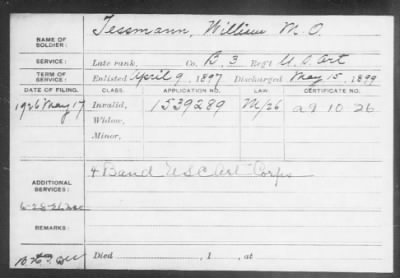 NAME OF SOLDIER: Tessmann, William M. O.
SERVICE: Late rank, Co. B, 3 Reg't U. S. Art
TERM OF SERVICE: Enlisted April 9, 1897 Discharged May 15, 1899
DATE OF FILING. CLASS. APPLICATION NO. LAW. CERTIFICATE NO.
1926 May 17 Invalid, 1539289 M/26 a9 10 26
Widow,
Minor,
ADDITIONAL SERVICES: 4 Band U S C Art Corps
REMARKS:
Died , 1 , at